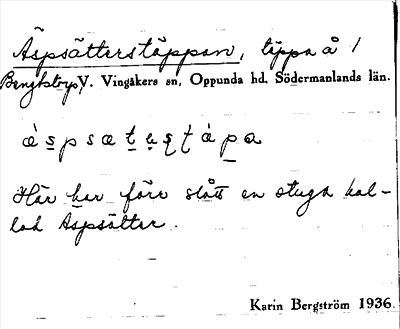 Äspsätterstäppan, täppa å 1
Bengtstorp, V. Vingåkers sn, Oppunda hd. Södermanlands län.
Här har förr stått en stuga kal-
lad Äspsätter.
Karin Bergström 1936.